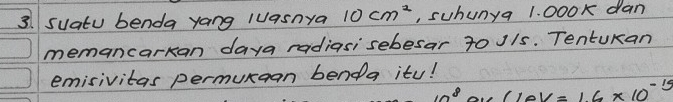 3. suatu benda yang luasnya 10 cm², suhunya 1.000K dan
memancarkan daya radiasi sebesar 70 J/s. Tentukan
emisivitas permukaan benda itu!
10⁸ (1eV = 1,6 × 10⁻¹⁹